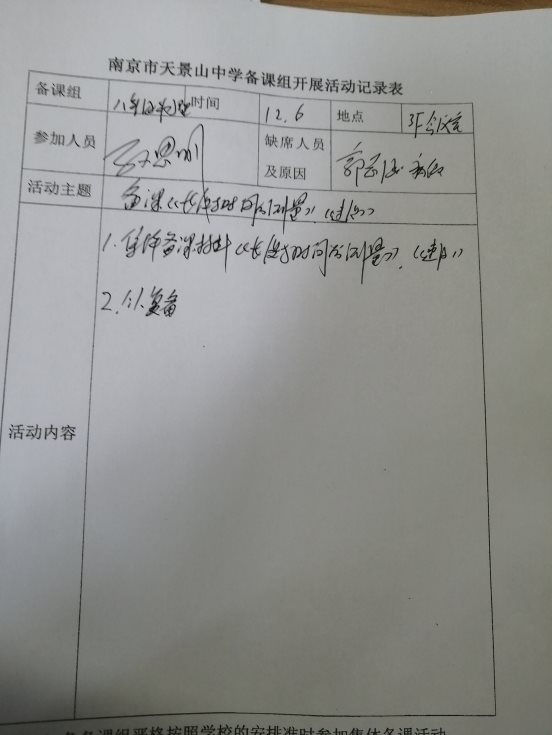 南京市天景山中学备课组开展活动记录表
备课组 八年级物理 时间 12.6 地点 3F会议室
参加人员 缺席人员及原因
活动主题 备课《长度与时间的测量》,《速度》
活动内容
1.集体备课材料《长度与时间的测量》,《速度》
2.个人复备
各备课组严格按照学校的安排准时参加集体备课活动